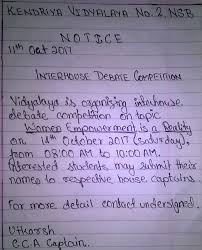 KENDRIYA VIDYALAYA NO. 2, NSB
NOTICE
11th Oct 2017
INTERHOUSE DEBATE COMPETITION
Vidyalaya is organising interhouse
debate competition on topic
Women Empowerment is a Reality
on 14th October 2017 (Saturday),
from 08:00 AM to 10:00 AM.
Interested students may submit their
names to respective house captains.
For more detail contact undersigned.
Utkarsh
C.C.A. Captain.